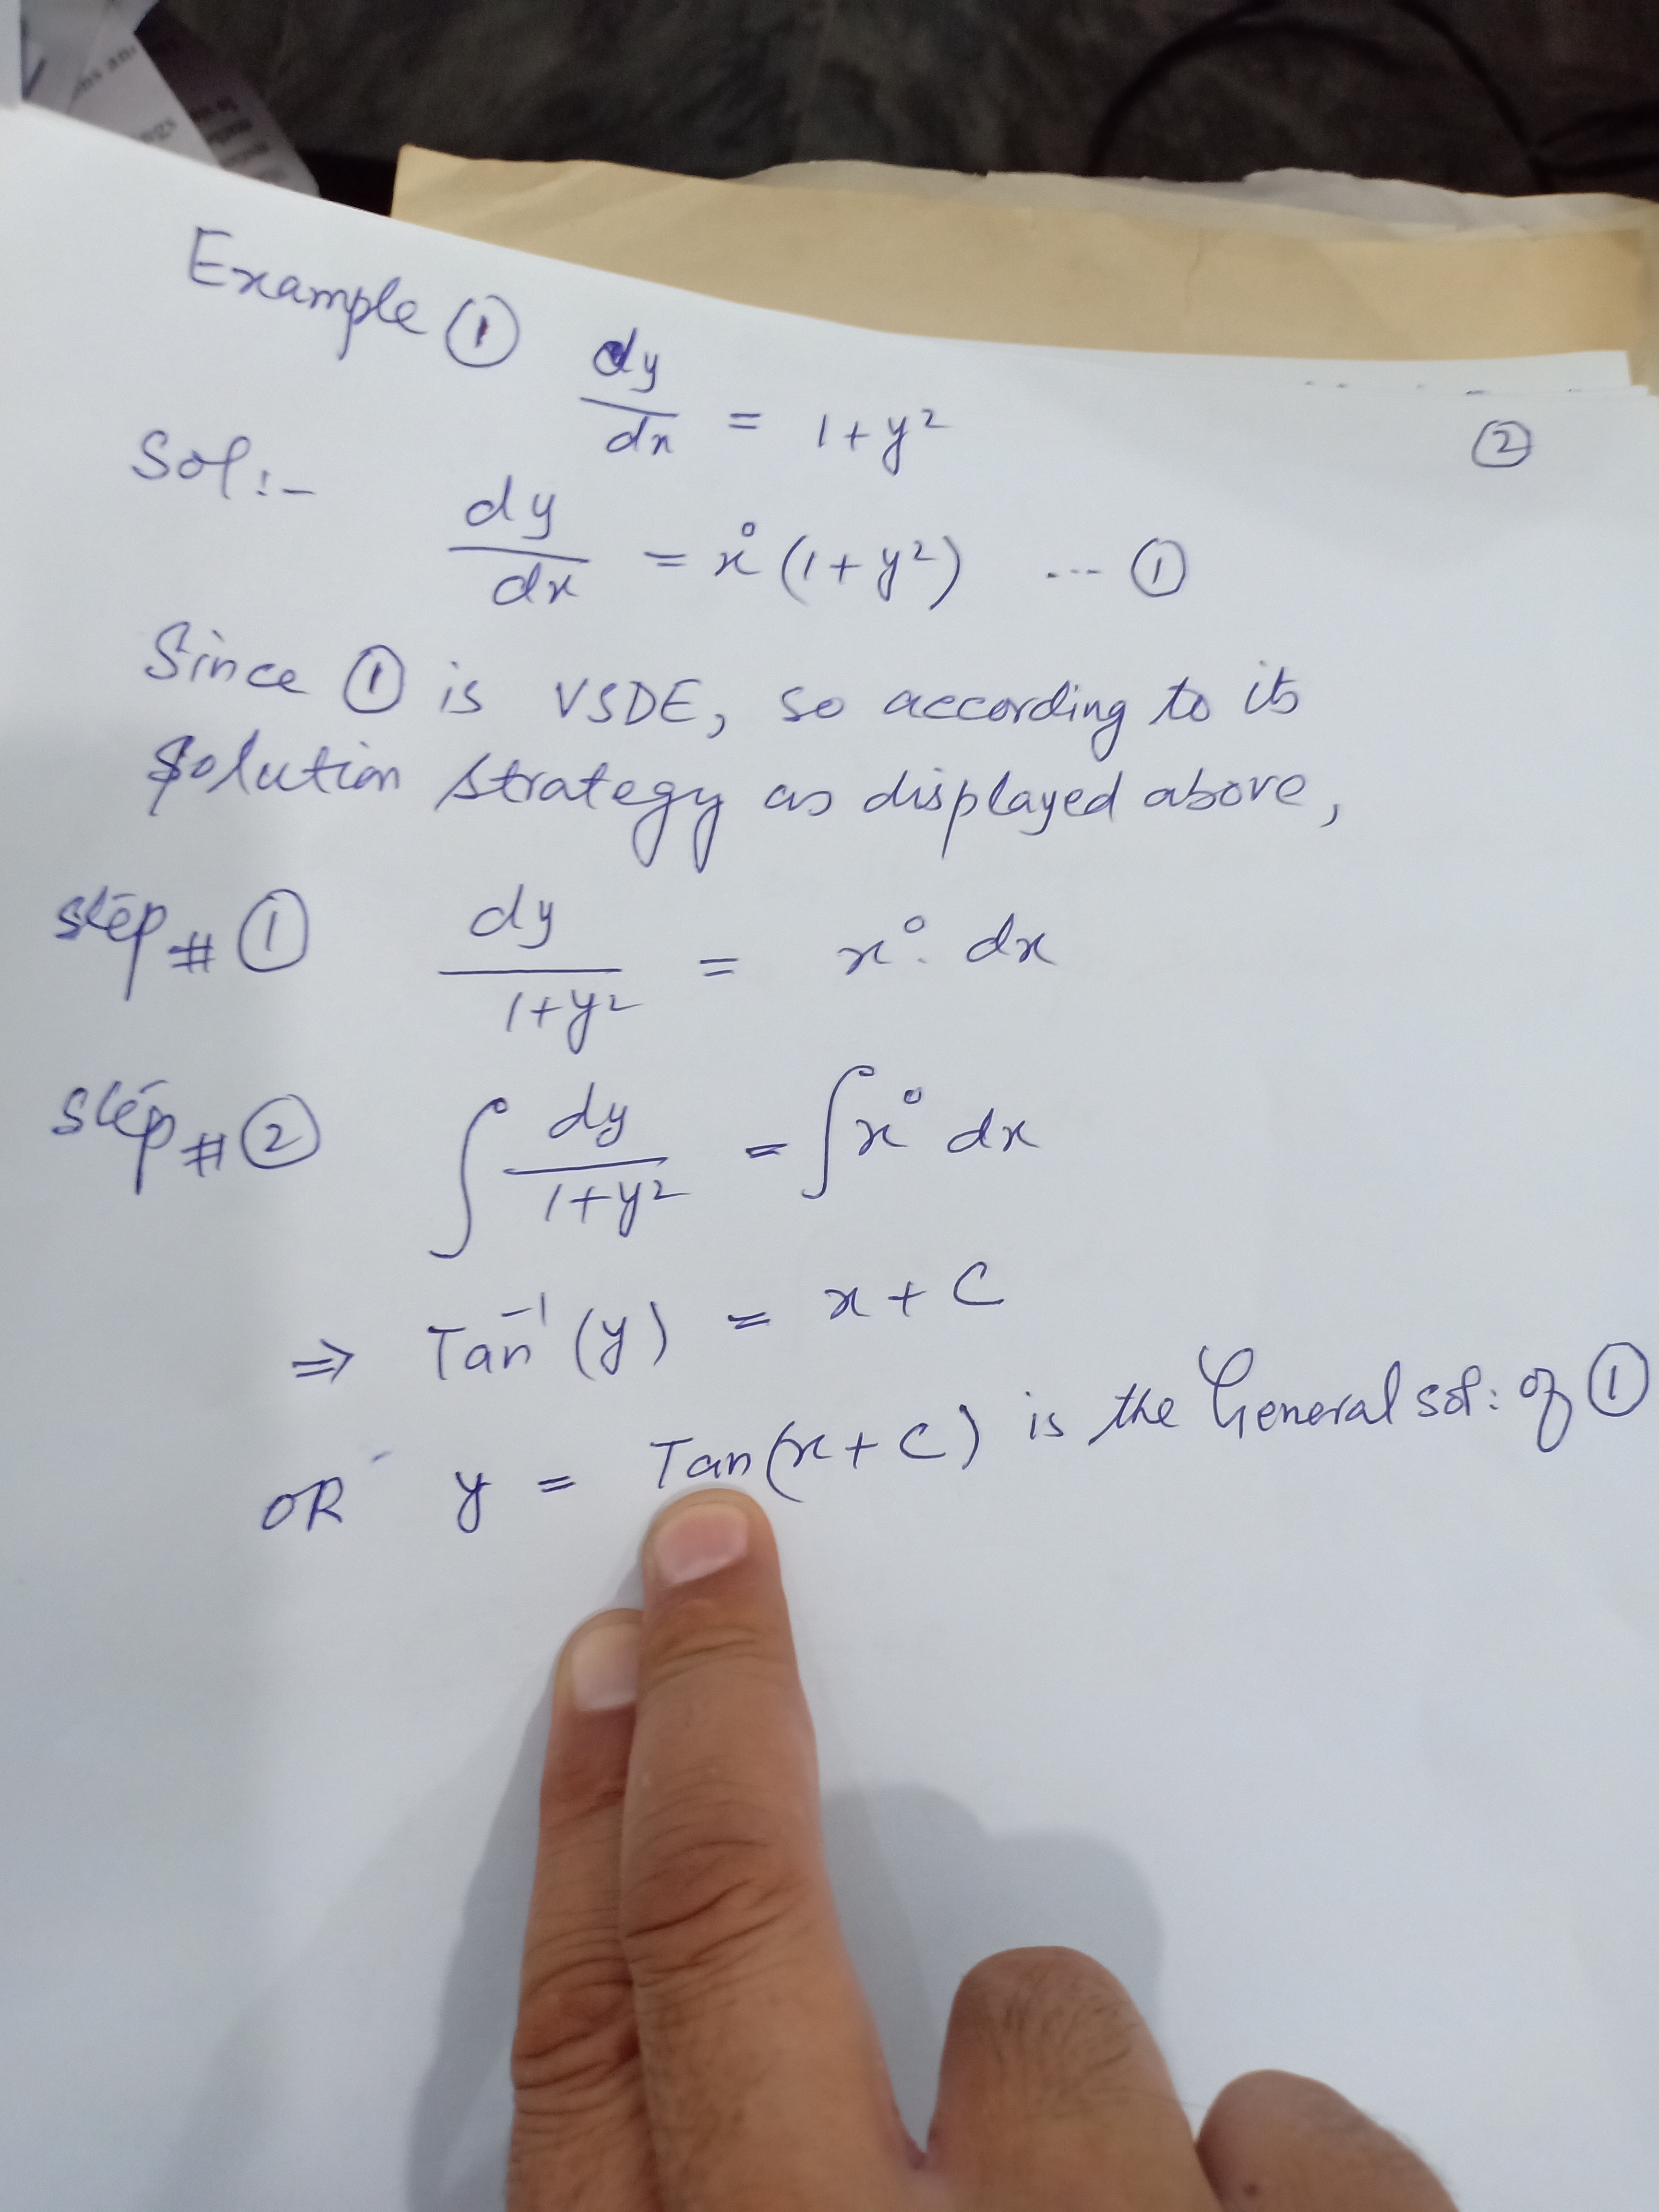 Example ① dy/dx = 1+y²
②
Sol:-
dy/dx = x⁰(1+y²) ... ①
Since ① is VSDE, so according to its
Solution strategy as displayed above,
step # ① dy/1+y² = x⁰. dx
step # ② ∫ dy/1+y² = ∫x⁰ dx
⇒ Tan⁻¹(y) = x + C
OR y = Tan(x+C) is the General sol: of ①